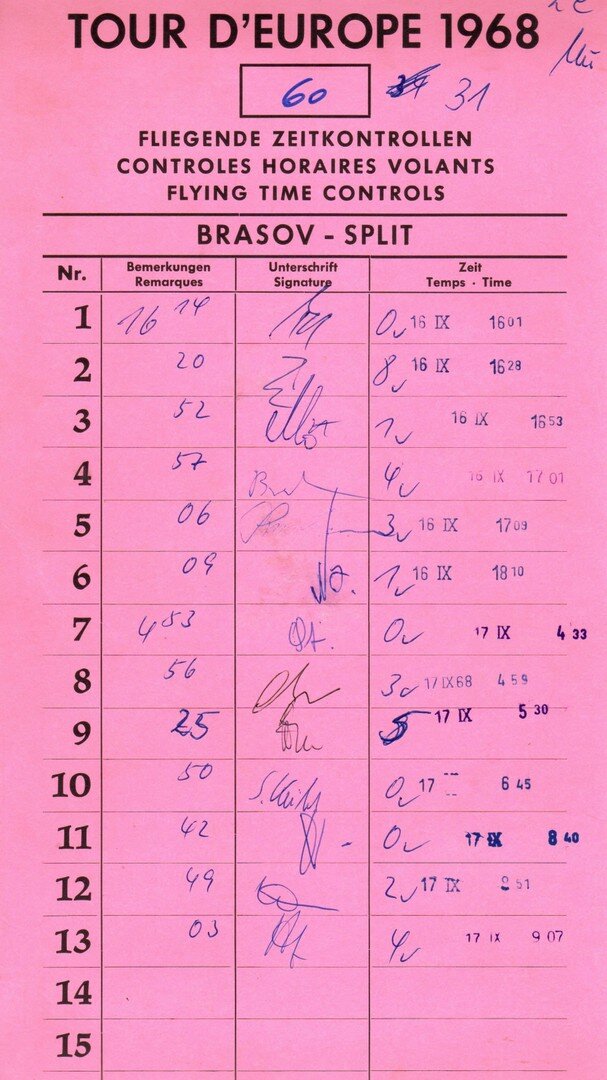 TOUR D'EUROPE 1968
60 31
FLIEGENDE ZEITKONTROLLEN
CONTROLES HORAIRES VOLANTS
FLYING TIME CONTROLS
BRASOV - SPLIT
Nr. Bemerkungen Remarques Unterschrift Signature Zeit Temps · Time
1 16 14 0 16 IX 16 01
2 20 8 16 IX 16 28
3 52 1 16 IX 16 53
4 57 4 16 IX 17 01
5 06 3 16 IX 17 09
6 09 1 16 IX 18 10
7 4 53 0 17 IX 4 33
8 56 3 17 IX 68 4 59
9 25 5 17 IX 5 30
10 50 0 17 6 45
11 42 0 17 IX 8 40
12 49 2 17 IX 51
13 03 4 17 IX 9 07
14
15